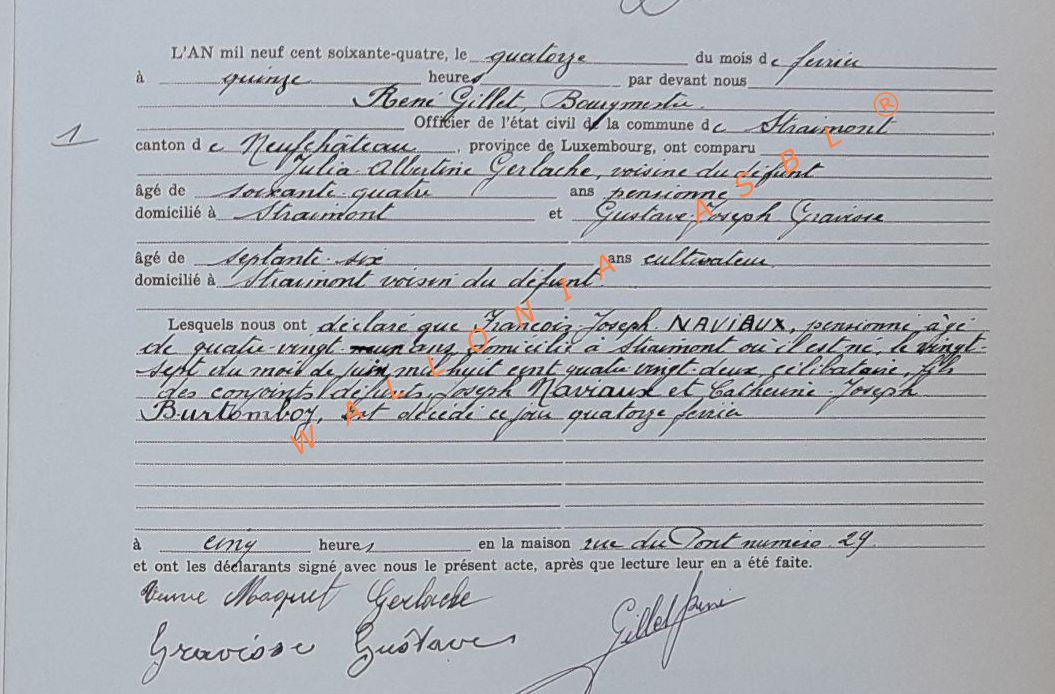 L'AN mil neuf cent soixante-quatre, le quatorze du mois de février
à quinze heures par devant nous
René Gillet, Bourgmestre.
1 Officier de l'état civil de la commune de Straimont
canton de Neufchâteau, province de Luxembourg, ont comparu
Julia Albertine Gerlache, voisine du défunt
âgé de soixante-quatre ans pensionné
domicilié à Straimont et Gustave Joseph Graviosse
âgé de septante-six ans cultivateur
domicilié à Straimont voisin du défunt
Lesquels nous ont déclaré que François Joseph NAVIAUX, pensionné, âgé
de quatre-vingt ans domicilié à Straimont où il est né, le vingt-
sept du mois de juin mil huit cent quatre vingt-deux, célibataire, fils
des conjoints défunts Joseph Naviaux et Catherine Joseph
Burtomboy, est décédé ce jour quatorze février
à cinq heures en la maison rue du Pont numéro 29
et ont les déclarants signé avec nous le présent acte, après que lecture leur en a été faite.
Veuve Maquet Gerlache
Graviosse Gustave
Gillet René
WALLONIA ASBL ®